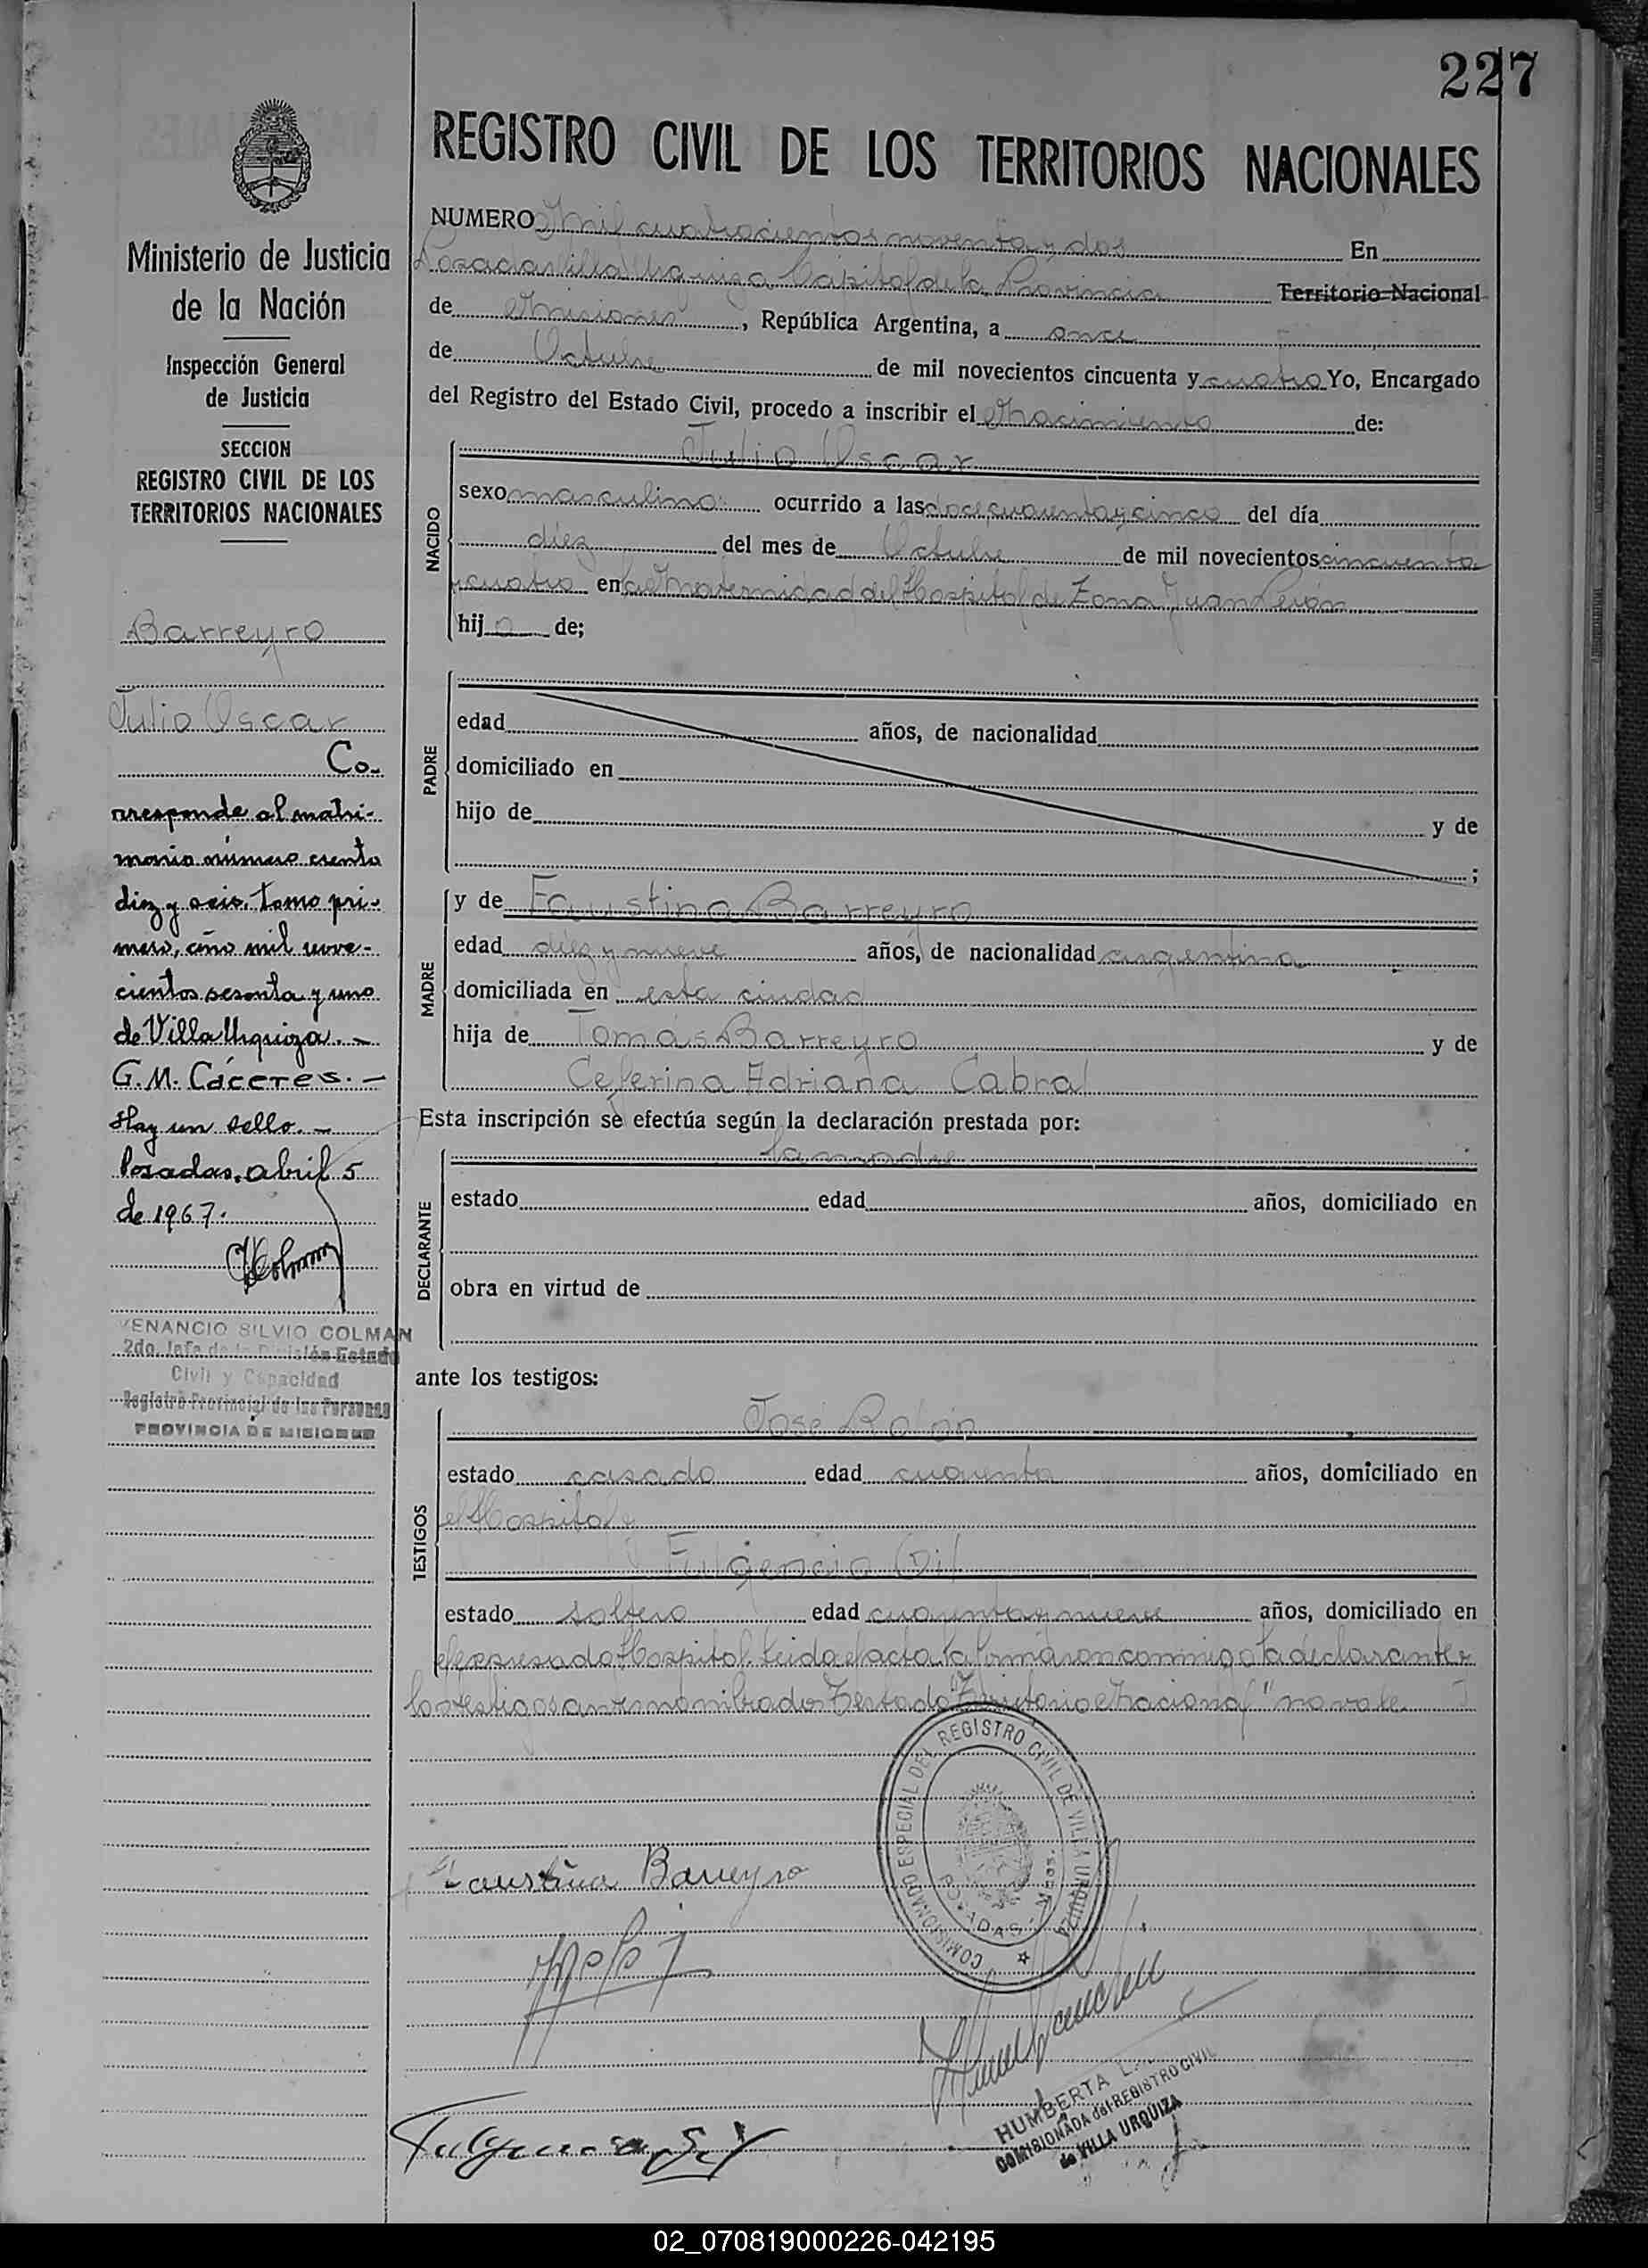 227
REGISTRO CIVIL DE LOS TERRITORIOS NACIONALES
Ministerio de Justicia
de la Nación
Inspección General
de Justicia
SECCION
REGISTRO CIVIL DE LOS
TERRITORIOS NACIONALES
Barreyro
Julio Oscar
Co-
rresponde al matri-
monio número ciento
diez y seis, tomo pri-
mero, año mil nove-
cientos sesenta y uno
de Villa Urquiza. -
G. M. Cáceres. -
Hay un sello. -
Posadas, abril 5
de 1967.
VENANCIO SILVIO COLMAN
2do. Jefe de la División Estado
Civil y Capacidad
Registro Provincial de las Personas
PROVINCIA DE MISIONES
NUMERO Mil cuatrocientos noventa y dos En
Posadas Villa Urquiza Capital de la Provincia Territorio Nacional
de Misiones, República Argentina, a once
de Octubre de mil novecientos cincuenta y cuatro Yo, Encargado
del Registro del Estado Civil, procedo a inscribir el Nacimiento de:
NACIDO
Julio Oscar
sexo masculino ocurrido a las doce, cuarenta y cinco del día
diez del mes de Octubre de mil novecientos cincuenta
y cuatro en la Maternidad del Hospital de Zona Juan Perón
hijo de;
PADRE
edad años, de nacionalidad
domiciliado en
hijo de y de
;
MADRE
y de Faustina Barreyro
edad diez y nueve años, de nacionalidad argentina
domiciliada en esta ciudad
hija de Tomás Barreyro y de
Ceferina Adriana Cabral
Esta inscripción se efectúa según la declaración prestada por:
DECLARANTE
la madre
estado edad años, domiciliado en
obra en virtud de
ante los testigos:
TESTIGOS
José
estado casado edad cuarenta años, domiciliado en
el Hospital
Fulgencio Gil
estado soltero edad cuarenta y nueve años, domiciliado en
el expresado Hospital. Leida el acta la firmaron conmigo la declarante y
los testigos antes nombrados. Testado "Territorio Nacional" no vale.
COMISIONADO ESPECIAL DEL REGISTRO CIVIL DE VILLA URQUIZA
POSADAS - Mnes.
Faustina Barreyro
Fulgencio Gil
HUMBERTA L.
COMISIONADA del REGISTRO CIVIL
de VILLA URQUIZA
02_070819000226-042195